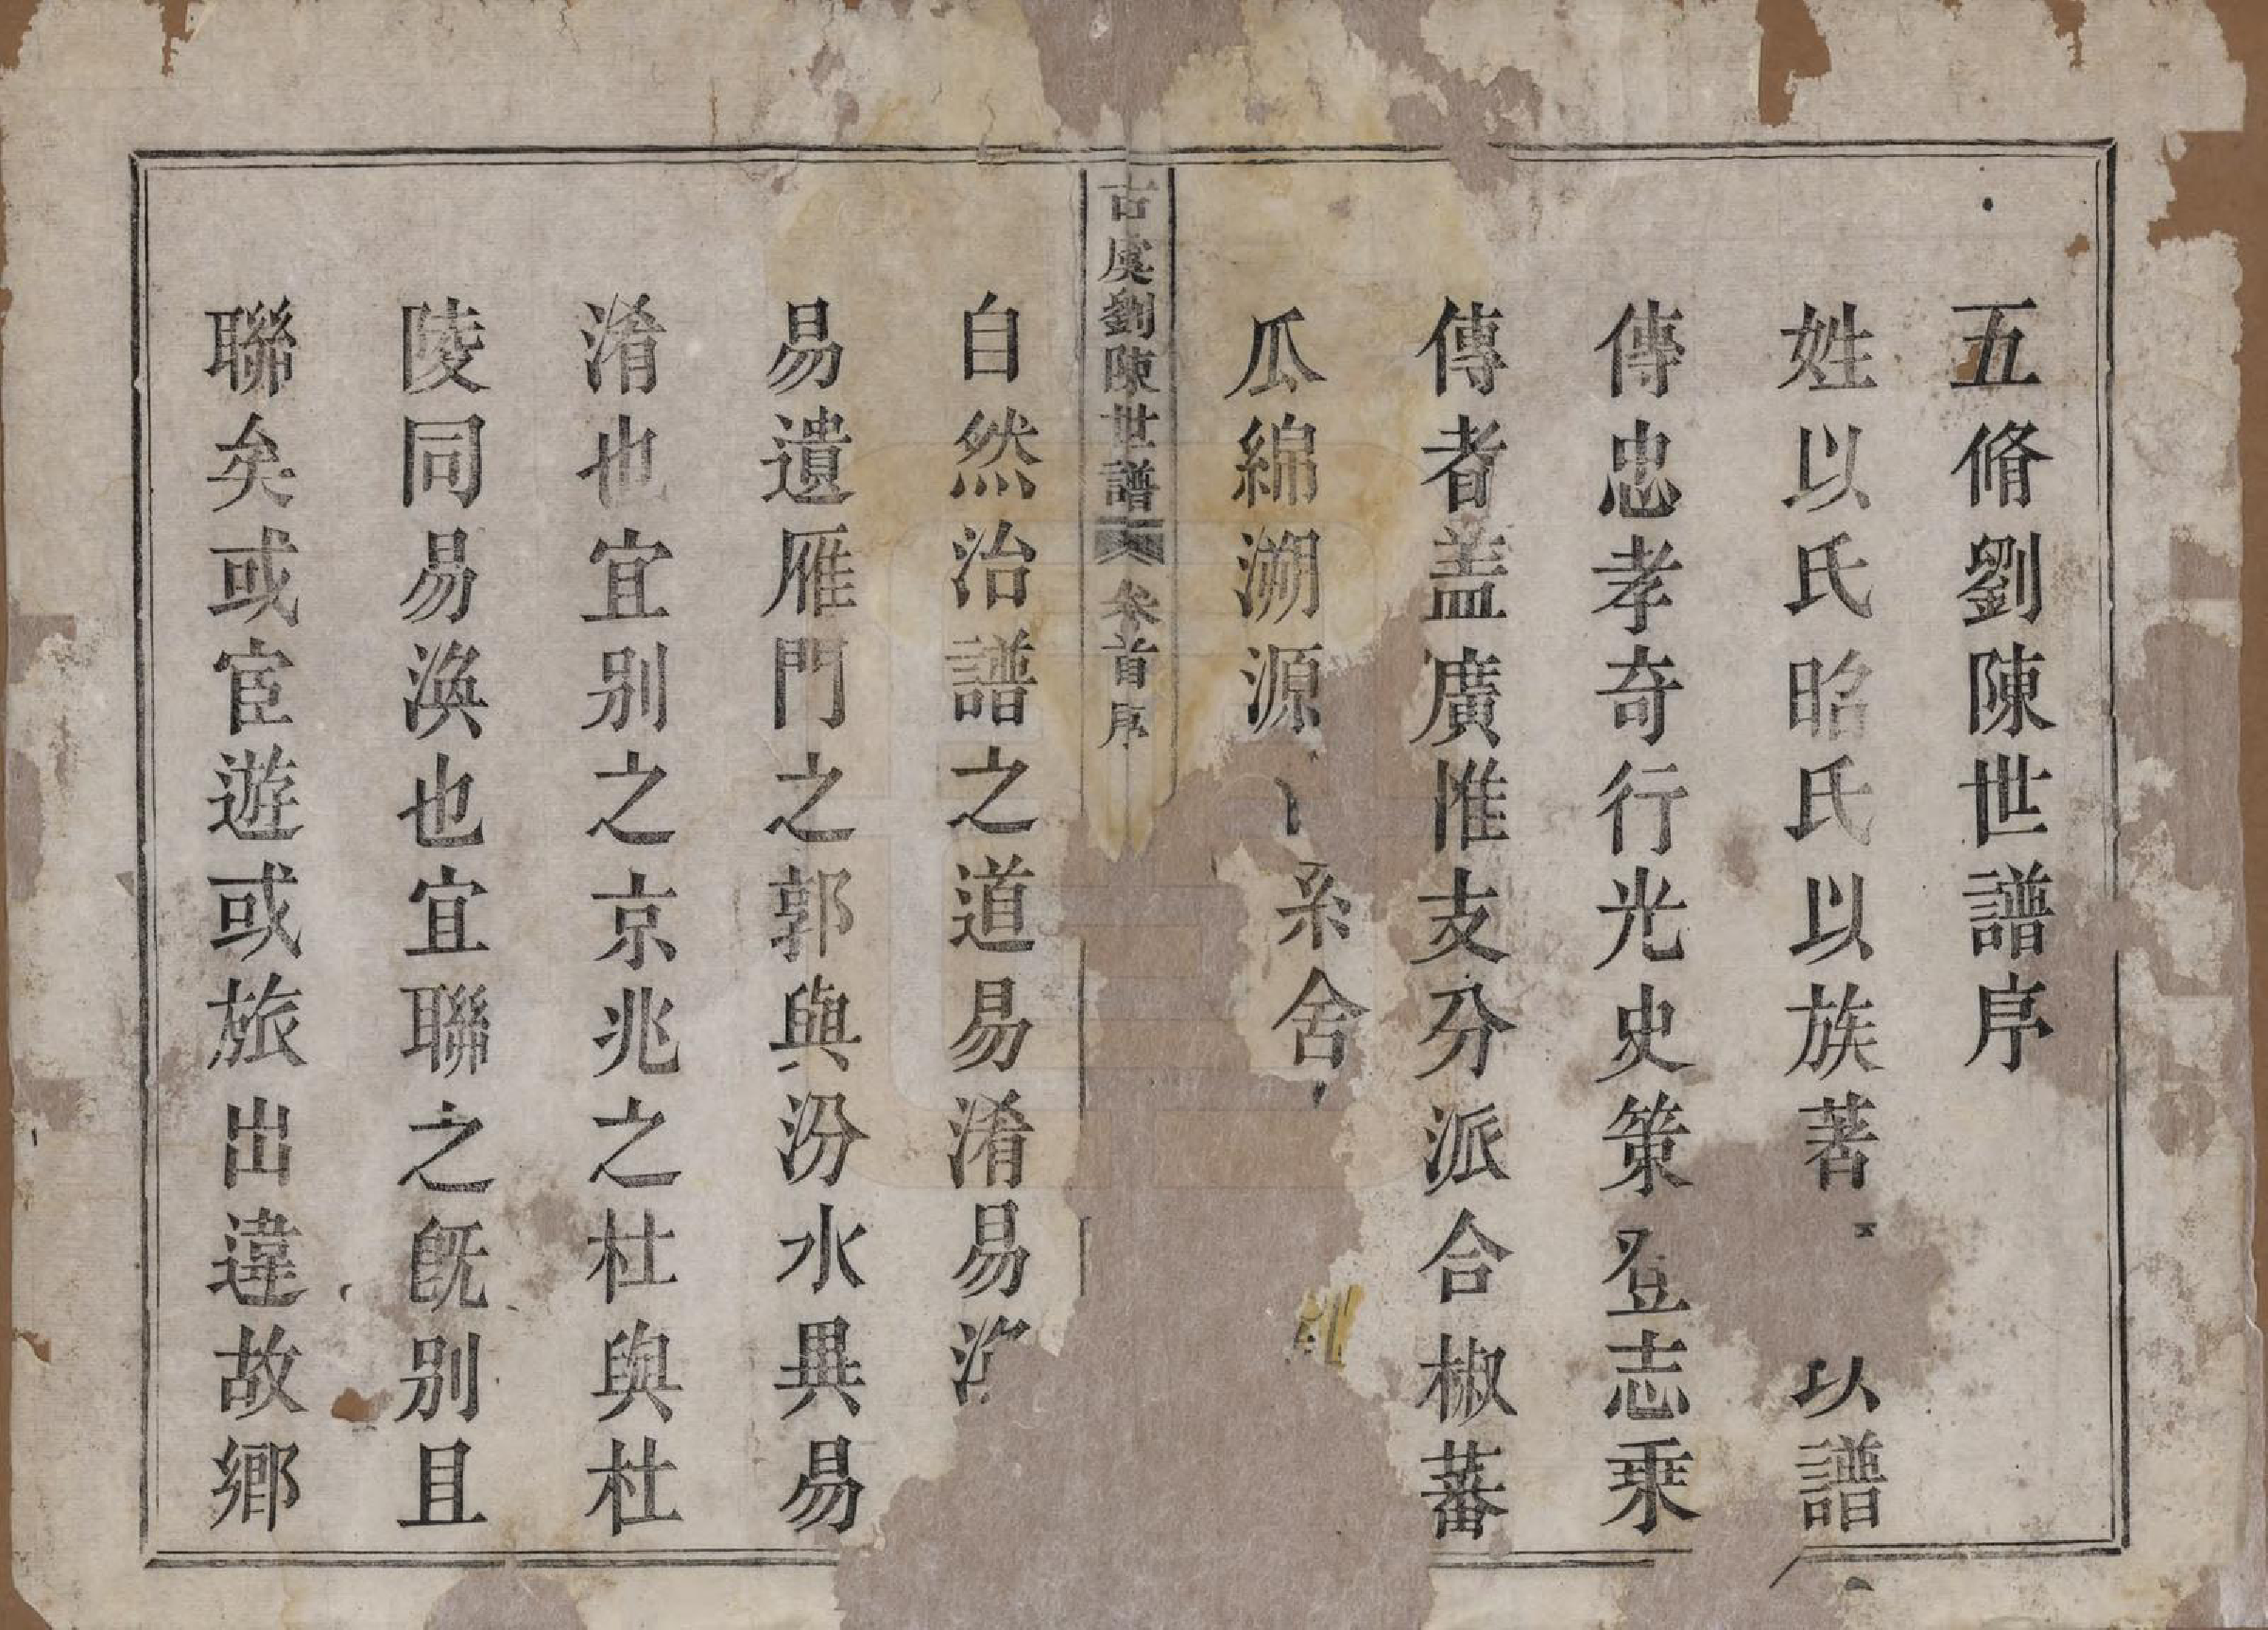 五脩劉陳世譜序
姓以氏昭氏以族著以譜
傳忠孝奇行光史策登志乘
傳者盖廣惟支分派合椒蕃
瓜綿溯源系舍
古虞劉陳世譜 卷首序
自然治譜之道易淆易渙
易遺雁門之郭與汾水異易
淆也宜别之京兆之杜與杜
陵同易渙也宜聯之旣别且
聯矣或宦遊或旅出違故鄉